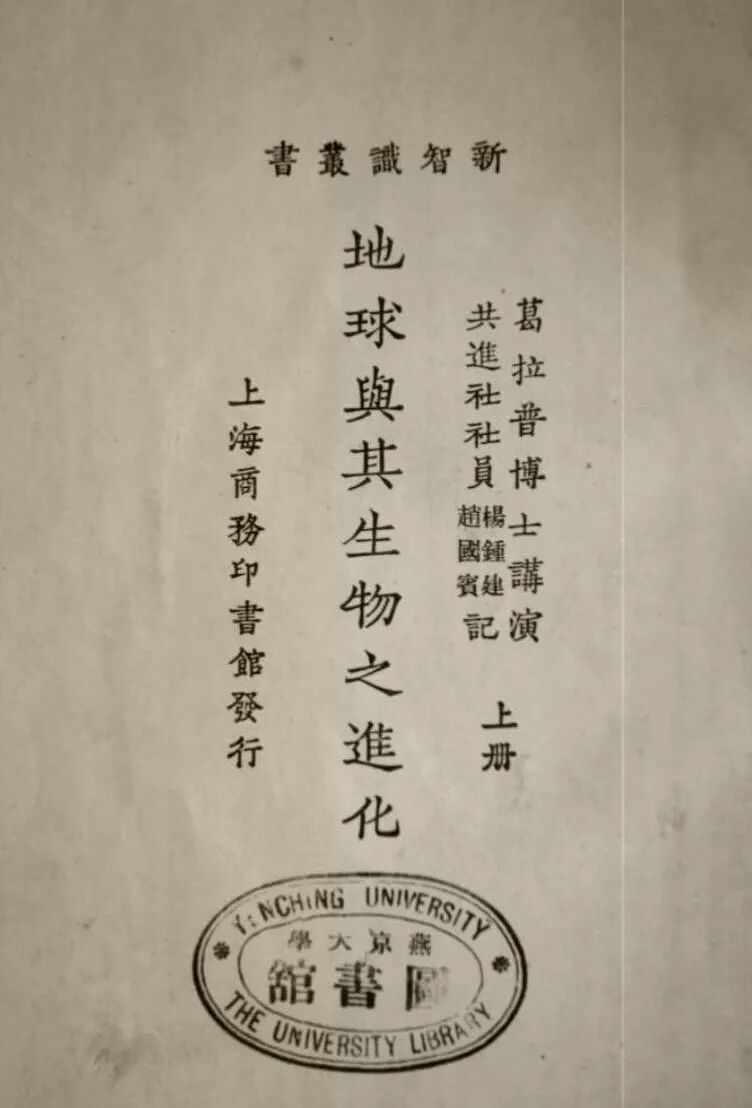 新智識叢書
葛拉普博士講演
共進社社員楊鍾建趙國賓記
上册
地球與其生物之進化
上海商務印書館發行
YENCHING UNIVERSITY
燕京大學
圖書館
THE UNIVERSITY LIBRARY